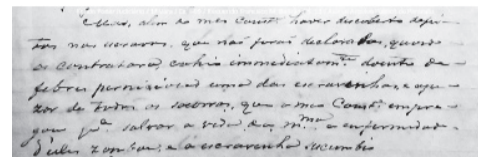 Mas, alem do meu Constte haver descoberto defei-
tos nas escravas, que não forão declarados, quando
os contratara, cahio immediatamte doente de
febres perniciosas uma das escravinhas, e ape-
zar de todos os socorros, que o meu Constte empre-
gou pa salvar a vida da mma a enfermidad-
d'elles zombou, e a escravinha sucumbio